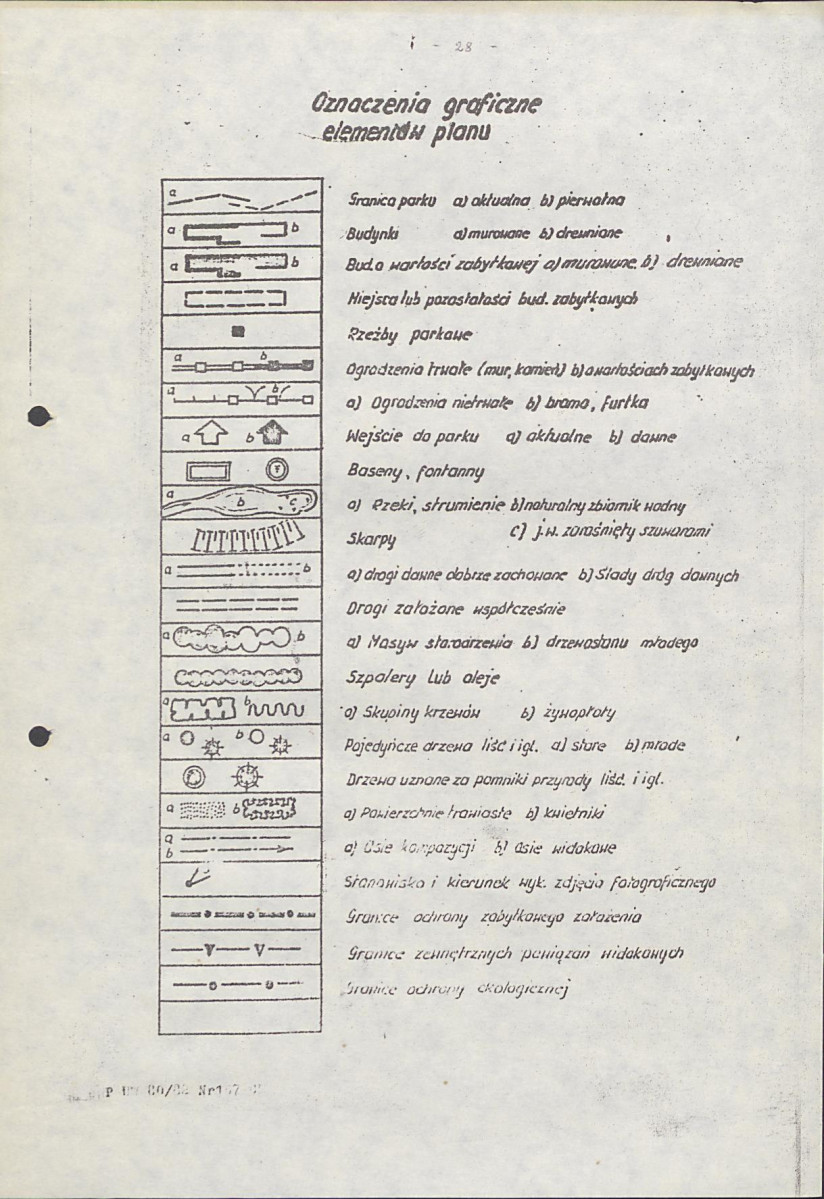 - 28 -
Oznaczenia graficzne
elementów planu
a
Granica parku a) aktualna b) pierwotna
a b
Budynki a) murowane b) drewniane
a b
Bud. o wartości zabytkowej a) murowane b) drewniane
Miejsca lub pozostałości bud. zabytkowych
Rzeźby parkowe
a b
Ogrodzenia trwałe (mur, kamień) b) o wartościach zabytkowych
a b
a) Ogrodzenia nietrwałe b) brama, furtka
a b
Wejście do parku a) aktualne b) dawne
F
Baseny, fontanny
a b c
a) Rzeki, strumienie b) naturalny zbiornik wodny
c) j.w. zarośnięty szuwarami
Skarpy
a b
a) drogi dawne dobrze zachowane b) Ślady dróg dawnych
Drogi założone współcześnie
a b
a) Masyw starodrzewia b) drzewostanu młodego
Szpalery lub aleje
a b
a) Skupiny krzewów b) żywopłoty
a b
Pojedyńcze drzewa liść i igl. a) stare b) młode
Drzewa uznane za pomniki przyrody liść. i igl.
a b
a) Powierzchnie trawiaste b) kwietniki
a
b
a) Osie kompozycji b) Osie widokowe
Stanowisko i kierunek wyk. zdjęcia fotograficznego
Granice ochrony zabytkowego założenia
Granice zewnętrznych powiązań widokowych
Granice ochrony ekologicznej
80/82